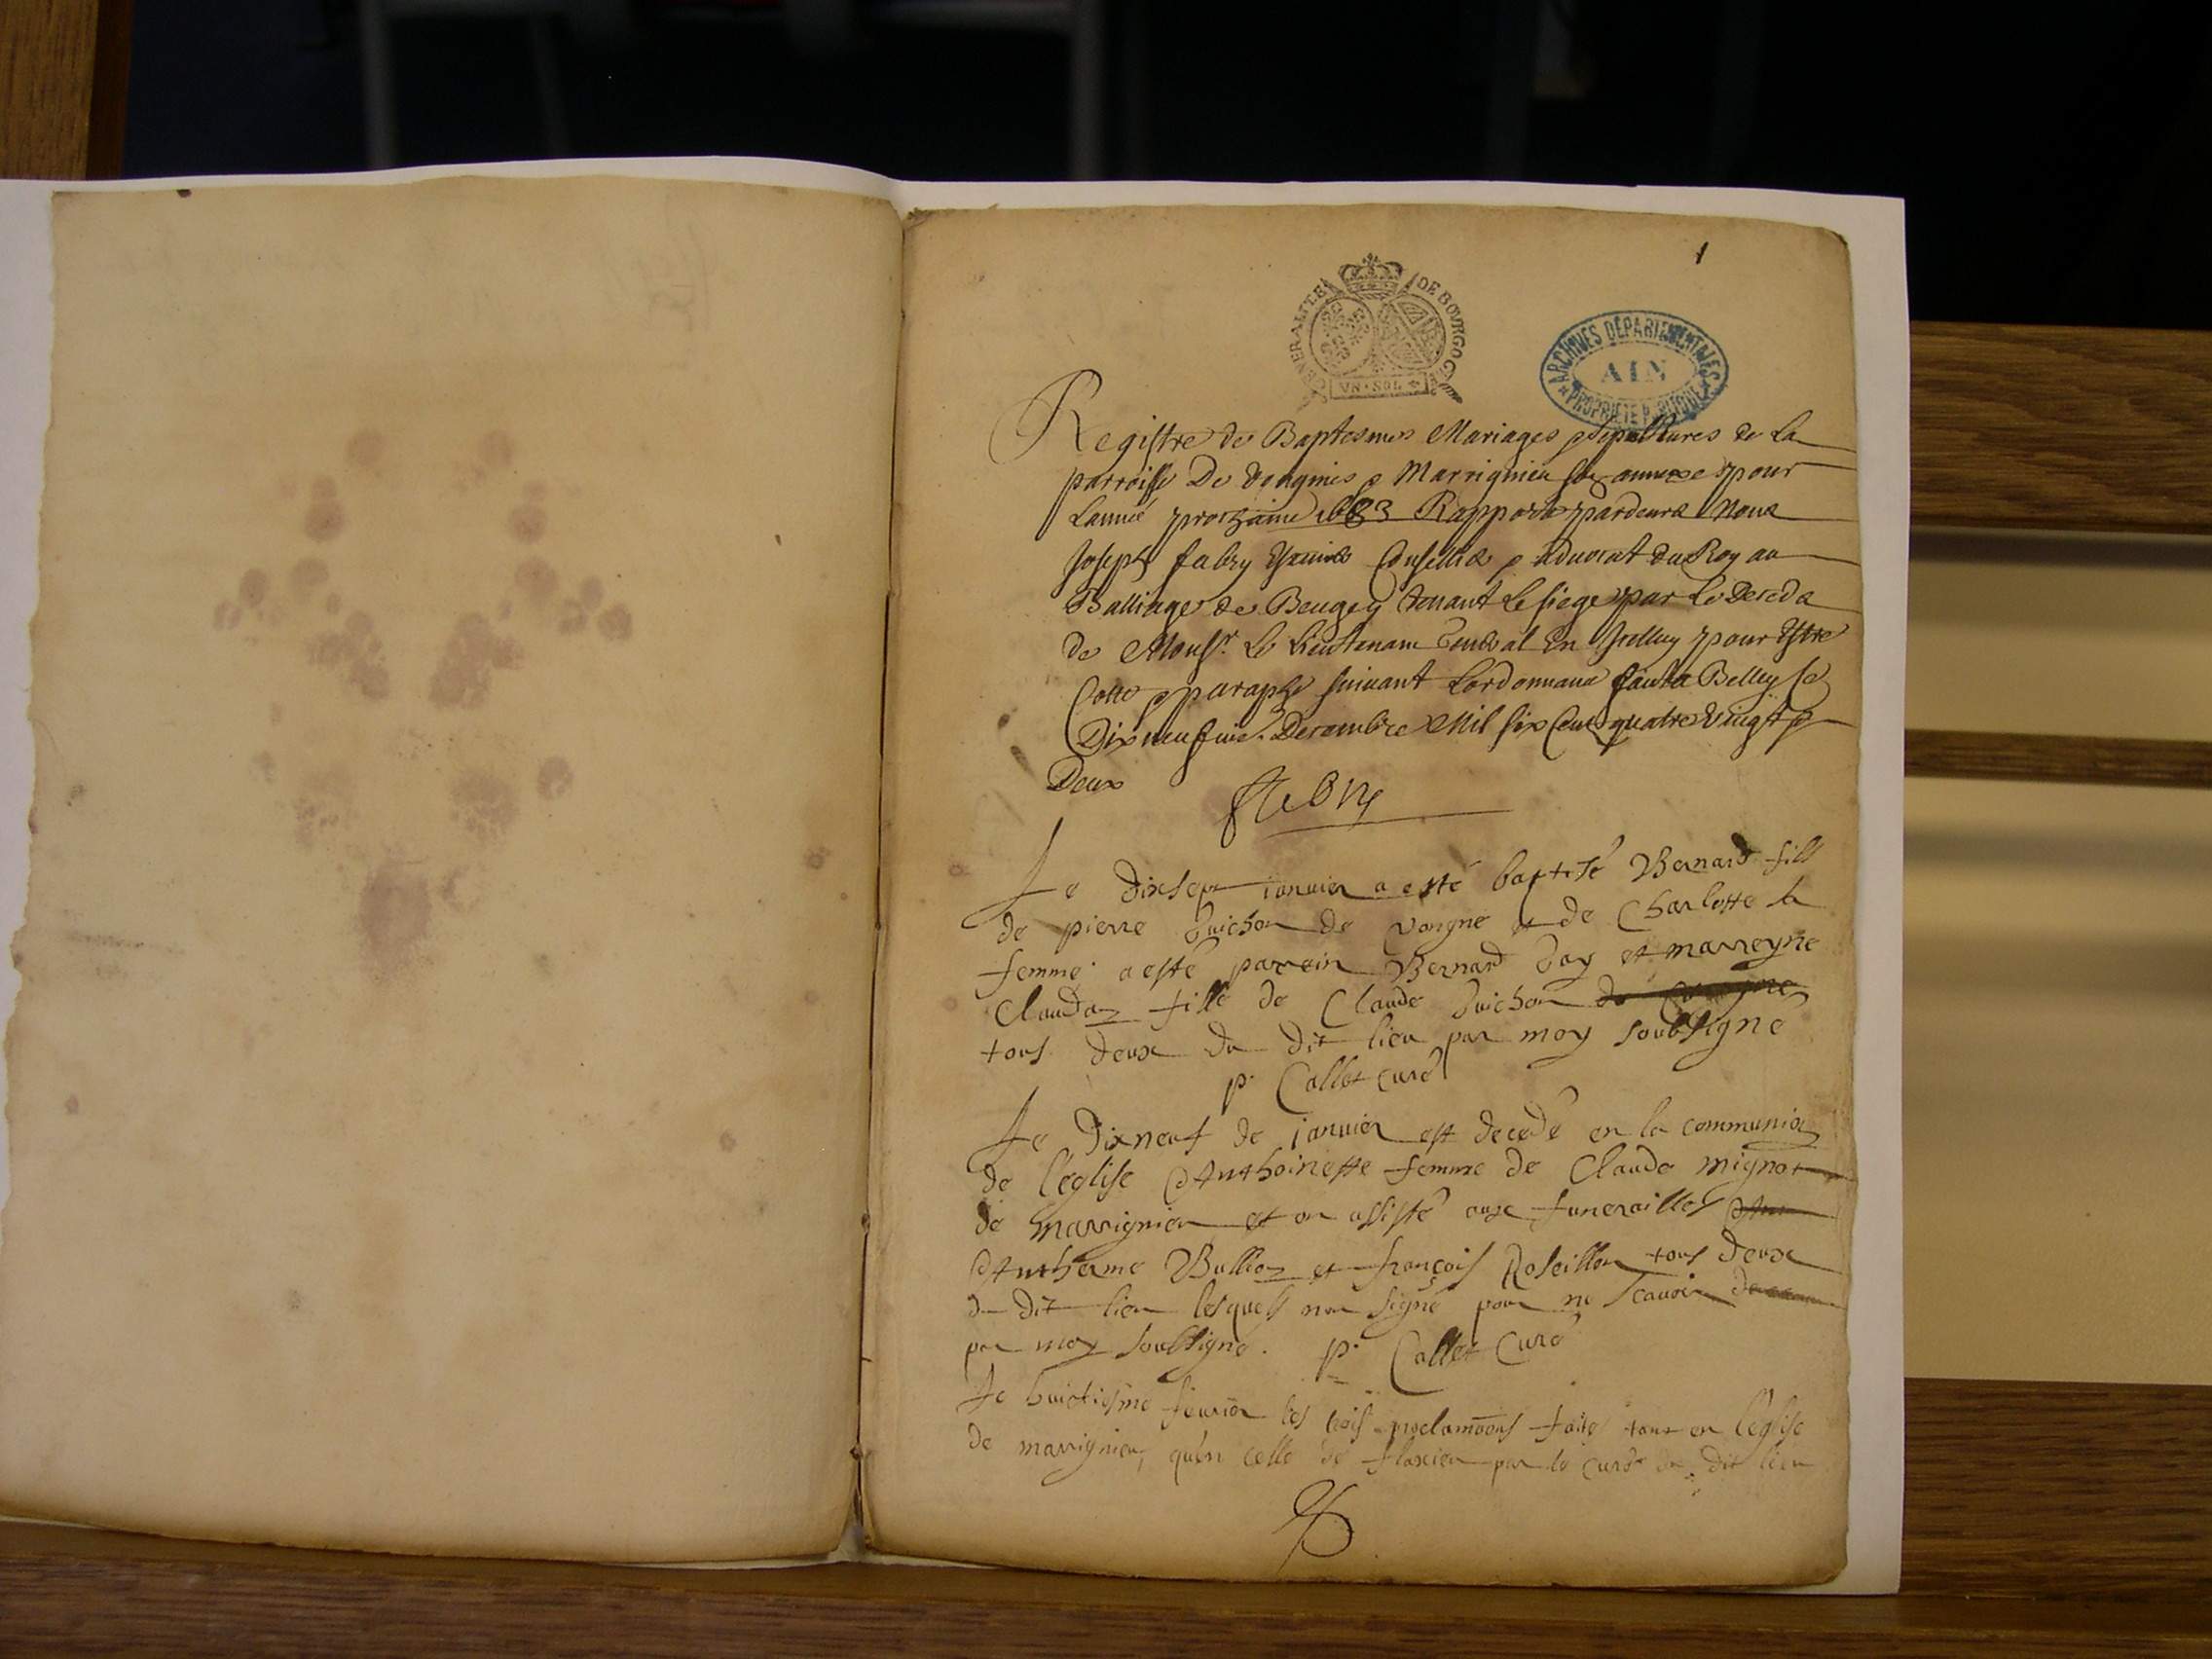 1
GENERALITE DE BOVRGOG
VN · SOL
ARCHIVES DÉPARTEMENTALES
AIN
PROPRIÉTÉ PUBLIQUE
Registre de Baptesmes Mariages & sepultures de La
parroisse De Vongnes & Marrignieu son annexe pour
Lannée prochaine 1683 Rapporté pardevant Nous
Joseph fabry Conseillier & advocat du Roy au
Balliage de Beugey tenant Le siege par Le
de Monsr. Le Lieutenant General En Icelluy pour Estre
Cotté & paraphé suivant Lordonnance Belley le
Dix neufuie. Decembre Mil six Cent quatre Vingt &
Deux
Le dixsept ianvier a esté baptisé Bernard fill
de pierre Guichon de Vongne et de Charlotte la
femme a esté parrein Bernard Gay et marreyne
Claudaz fille de Claude Guichon de Vongnes
tous deux du dit lieu par moy soubsigné
p. Callet curé
Le Dixneuf de ianvier est decedé en la communion
de l'eglise Anthoinette femme de Claude mignot
de marrignieu et on assisté aux funerailles
Antherme Bullioz et françois Roseillon tous deux
du dit lieu lesquels non signé pour ne scavoir
par moy soubsigné. p. Callet Curé
Le huictiesme feurier les trois proclamaons faites tant en l'eglise
de marrignieu, qu'en celle de flaxieu par le curé du dit lieu